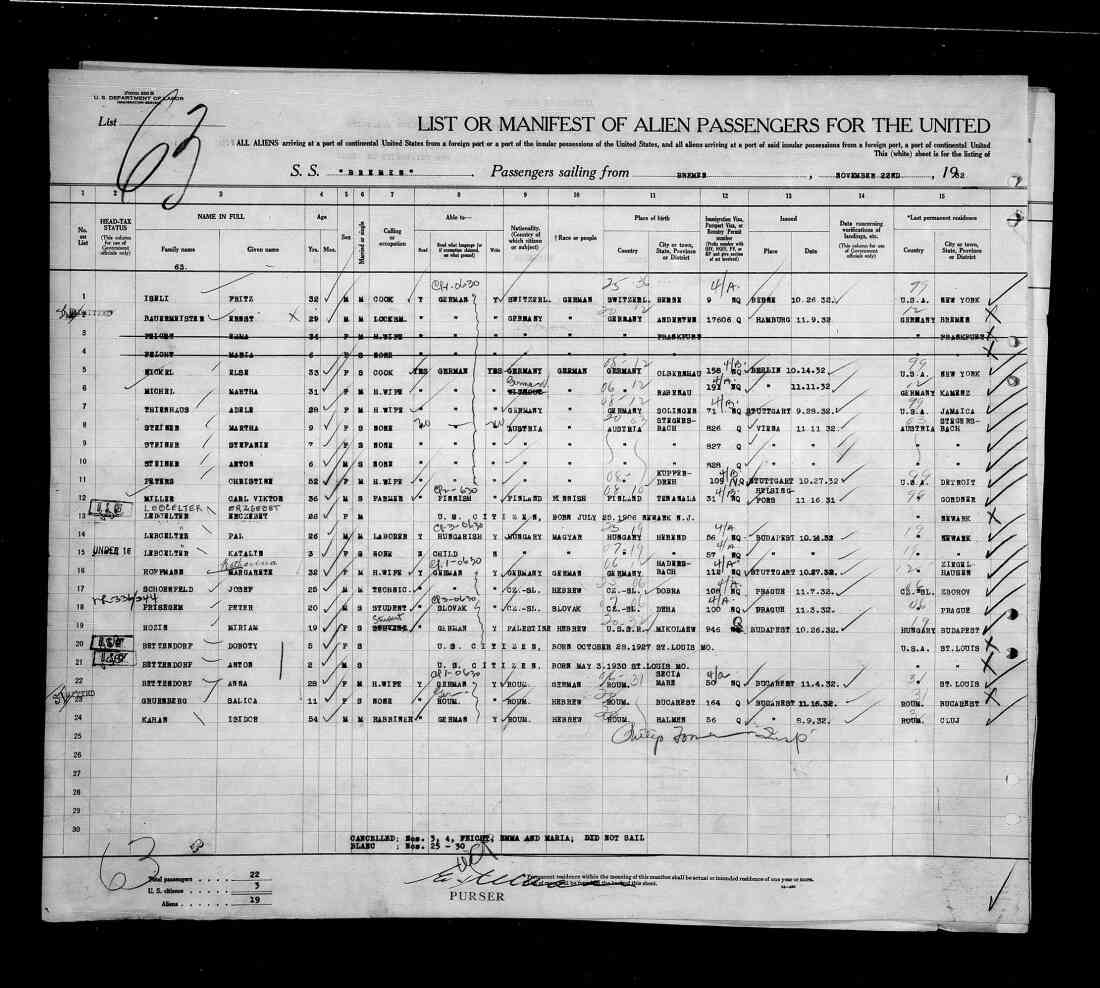 U.S. DEPARTMENT OF LABOR
List
63
LIST OR MANIFEST OF ALIEN PASSENGERS FOR THE UNITED
ALL ALIENS arriving at a port of continental United States from a foreign port or a port of the insular possessions of the United States, and all aliens arriving at a port of said insular possessions from a foreign port, a port of continental United
This (white) sheet is for the listing of
S. S. "BREMEN" Passengers sailing from BREMEN , NOVEMBER 22ND , 1932
1 2 3 4 5 6 7 8 9 10 11 12 13 14 15
No. on List
HEAD-TAX STATUS (This column for use of Government officials only)
NAME IN FULL Family name Given name
Age Yrs. Mos.
Sex
Married or single
Calling or occupation
Able to— Read Write
Nationality. (Country of which citizen or subject)
†Race or people
Place of birth Country City or town, State, Province or District
Issued Place Date
Data concerning verifications of landings, etc. (This column for use of Government officials only)
*Last permanent residence Country City or town, State, Province or District
63.
1 ISELI FRITZ 32 M M COOK Y GERMAN Y SWITZERL. GERMAN SWITZERL. BERNE 9 NQ BERNE 10.26 32. U.S.A. NEW YORK
2 BAUERMEISTER ERNST X 29 M M LOCKSM. " " " GERMANY " GERMANY ANDERTEN 17606 Q HAMBURG 11.9.32. GERMANY BREMEN
3 EMMA 34 H.WIFE FRANKFURT FRANKFURT
4 MARIA 6 S NONE
5 MICKEL ELSE 33 F S COOK YES GERMAN YES GERMANY GERMAN GERMANY OLBERNHAU 158 NQ BERLIN 10.14.32 U.S.A. NEW YORK
6 MICHEL MARTHA 31 F M H.WIFE " " " German " GERMANY RABENAU 192 NQ " 11.11.32 GERMANY KAMENZ
7 THIENHAUS ADELE 28 F M H.WIFE " " " GERMANY " GERMANY SOLINGEN 71 NQ STUTTGART 9.28.32. U.S.A. JAMAICA
8 STEINER MARTHA 9 F S NONE no no AUSTRIA " AUSTRIA STEGERSBACH 826 Q VIENA 11.11 32. AUSTRIA STEGERSBACH
9 STEINER STEFANIE 7 F S NONE " " " " " 827 Q " " " "
10 STEINER ANTON 6 M S NONE " " " " " 828 Q " " " "
11 PETERS CHRISTINE 52 F M H.WIFE KUPFERDREH 109 NQ STUTTGART 10.27.32 U.S.A. DETROIT
12 MILLER CARL VIKTOR 36 M S FARMER " FINNISH " FINLAND FINNISH FINLAND TENHALA 31 NQ HELSINGFORS 11.16.31 " GORDNER
13 LEBCELTER ERZSEBET 26 F M U.S. CITIZEN, BORN JULY 25.1906 NEWARK N.J. " NEWARK
14 LEBCELTER PAL 26 M M LABORER Y HUNGARISH Y HUNGARY MAGYAR HUNGARY HEREND 56 NQ BUDAPEST 10.14.32 " NEWARK
UNDER 16
15 LEBCELTER KATALIN 3 F S NONE N CHILD N " " " " 57 NQ " " " "
Katherina
16 HOFFMANN MARGARETE 32 F M H.WIFE Y GERMAN Y GERMANY GERMAN GERMANY HADERSBACH 112 NQ STUTTGART 10.27.32 " ZIEGELHAUSEN
17 SCHOENFELD JOSEF 25 M M TECHNIC. " " " CZ.-SL. HEBREW CZ.-SL. DOBRA 108 NQ PRAGUE 11.7.32. CZ.-SL. ZBOROV
18 PRISEGEM PETER 20 M S STUDENT " SLOVAK " CZ.-SL. SLOVAK CZ.-SL. DEHA 100 NQ PRAGUE 11.3.32. " PRAGUE
19 HOZIN MIRIAM 19 F S Student " GERMAN Y PALESTINE HEBREW U.S.S.R. MIKOLAEW 946 Q BUDAPEST 10.26.32. HUNGARY BUDAPEST
20 BETTENDORF DOROTY 5 F S U.S. CITIZEN, BORN OCTOBER 28.1927 ST.LOUIS MO. U.S.A. ST.LOUIS
21 BETTENDORF ANTON 2 M S U.S. CITIZEN. BORN MAY 3.1930 ST.LOUIS MO. " "
22 BETTENDORF ANNA 28 F M H.WIFE Y GERMAN Y ROUM. GERMAN ROUM. SECIA MARE 50 NQ BUCAREST 11.4.32. " ST.LOUIS
23 GRUENBERG SALICA 11 F S NONE " ROUM. " ROUM. HEBREW ROUM. BUCAREST 164 Q BUCAREST 11.15.32. ROUM. BUCAREST
24 KAHAN ISIDOR 54 M M RABBINER " GERMAN Y ROUM. HEBREW ROUM. HALMEN 56 Q " 8.9.32. ROUM. CLUJ
25
26
27
28
29
30
CANCELLED: Nos. 3, 4, FEICHT, EMMA AND MARIA; DID NOT SAIL
BLANC : Nos. 25 - 30
63
Total passengers 22
U. S. citizens 3
Aliens 19
PURSER
Permanent residence within the meaning of this manifest shall be actual or intended residence of one year or more.